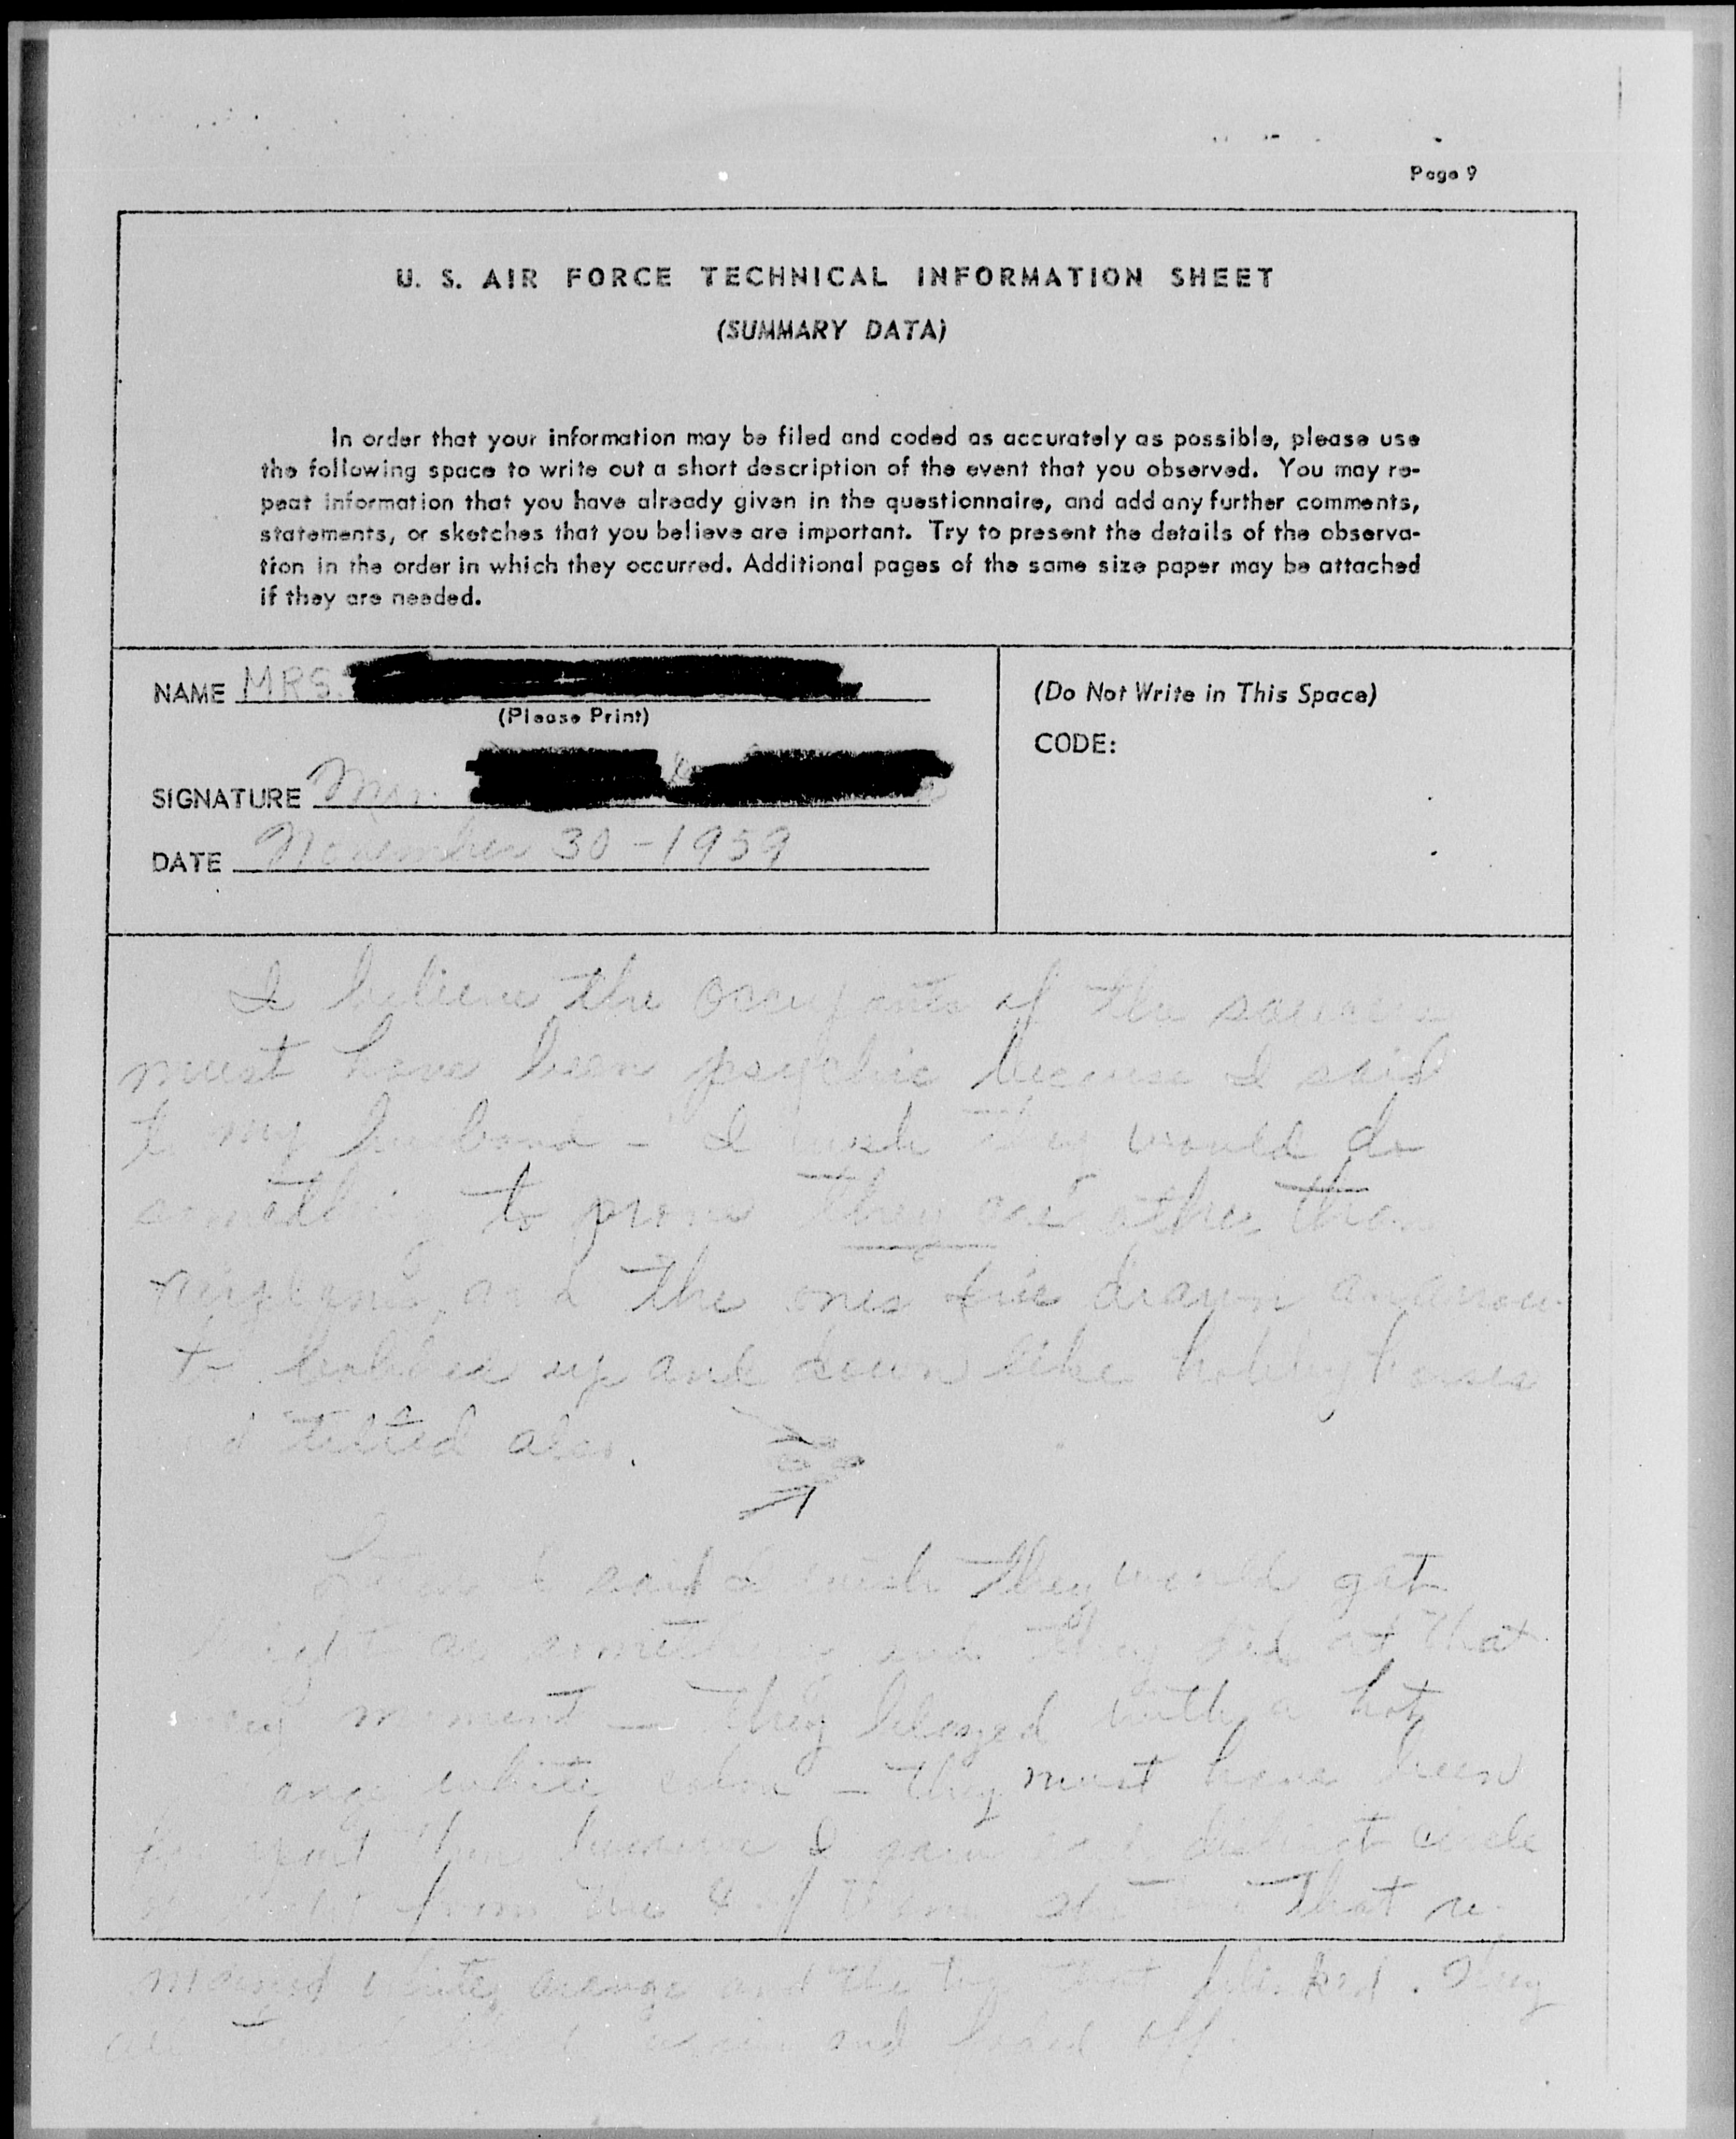 Page 9
U. S. AIR FORCE TECHNICAL INFORMATION SHEET
(SUMMARY DATA)
In order that your information may be filed and coded as accurately as possible, please use
the following space to write out a short description of the event that you observed. You may re-
peat information that you have already given in the questionnaire, and add any further comments,
statements, or sketches that you believe are important. Try to present the details of the observa-
tion in the order in which they occurred. Additional pages of the same size paper may be attached
if they are needed.
NAME MRS.
(Please Print)
SIGNATURE Mrs.
DATE November 30-1959
(Do Not Write in This Space)
CODE:
I believe the occupants of the saucers
must have been psychic because I said
to my husband - I wish they would do
something to prove they are other than
and the ones I've drawn an arrow
to bobbed up and down like hobbyhorses
tilted also.
I said I wish they would get
bright or something and they did at that
very moment - they blazed with a hot
white color - they must have been
then because I saw distinct circle
from the 4 of them that re-
mained white orange and the two that blinked. They
all and faded off.